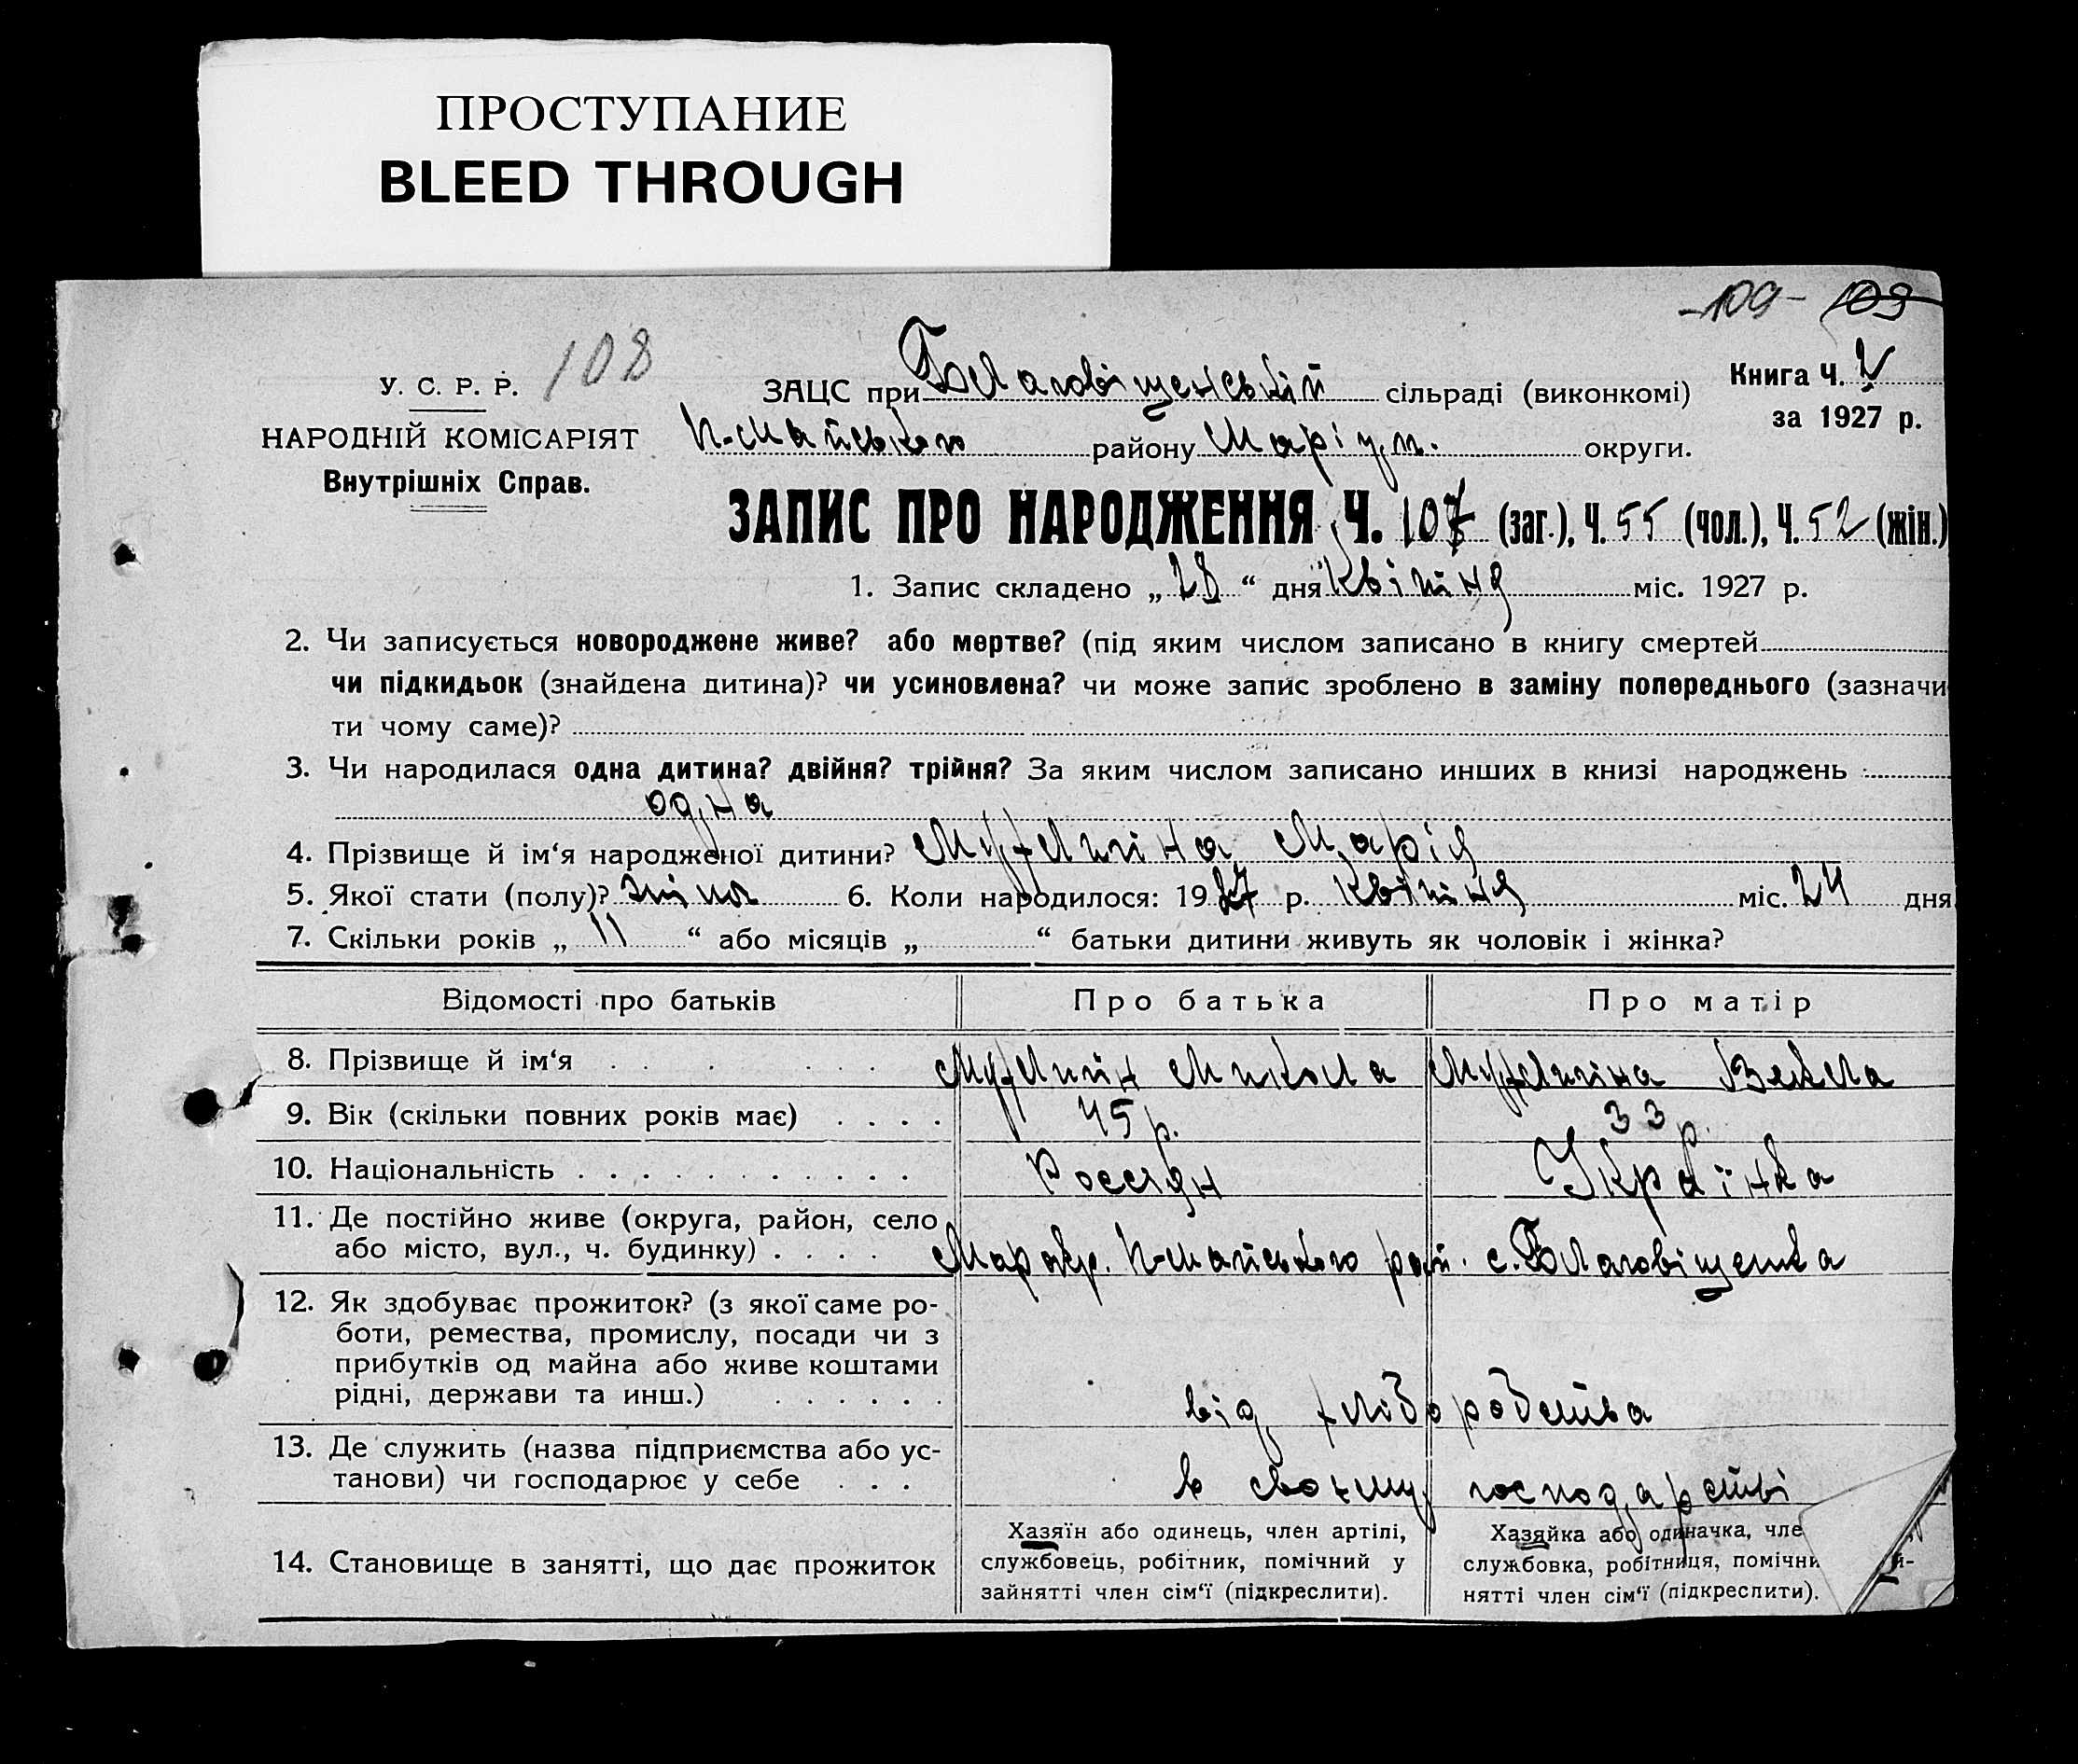 ПРОСТУПАНИЕ
BLEED THROUGH
-109- 109
108
У. С. Р. Р.
НАРОДНІЙ КОМІСАРІЯТ
Внутрішніх Справ.
ЗАЦС при Благовіщенській сільраді (виконкомі)
Книга Ч. V
за 1927 р.
П-Майського району Маріуп. округи.
ЗАПИС ПРО НАРОДЖЕННЯ Ч. 107 (заг.), Ч. 55 (чол.), Ч. 52 (жін.)
1. Запис складено „ 28 “ дня квітня міс. 1927 р.
2. Чи записується новороджене живе? або мертве? (під яким числом записано в книгу смертей
чи підкидьок (знайдена дитина)? чи усиновлена? чи може запис зроблено в заміну попереднього (зазначи
ти чому саме)?
3. Чи народилася одна дитина? двійня? трійня? За яким числом записано инших в книзі народжень :
одна
4. Прізвище й ім‘я народженої дитини? Муфлигіна Марія
5. Якої стати (полу)? жіноч 6. Коли народилося: 1927 р. квітня міс. 24 дня
7. Скільки років „ 11 “ або місяців „ “ батьки дитини живуть як чоловік і жінка?
Відомості про батьків Про батька Про матір
8. Прізвище й ім‘я Микола
9. Вік (скільки повних років має) 45 р. 33 р.
10. Національність Россіян Українка
11. Де постійно живе (округа, район, село
або місто, вул., ч. будинку) Мар окр. П-Майського рай. с. Благовіщенка
12. Як здобуває прожиток? (з якої саме ро-
боти, ремества, промислу, посади чи з
прибутків од майна або живе коштами
рідні, держави та инш.) від хліборобства
13. Де служить (назва підприємства або ус-
танови) чи господарює у себе в своєму господарстві
14. Становище в занятті, що дає прожиток
Хазяїн або одинець, член артілі,
службовець, робітник, помічний у
зайнятті член сім‘ї (підкреслити).
Хазяйка або одиначка, чле
службовка, робітниця, помічн й-
нятті член сім‘ї (підкреслити).